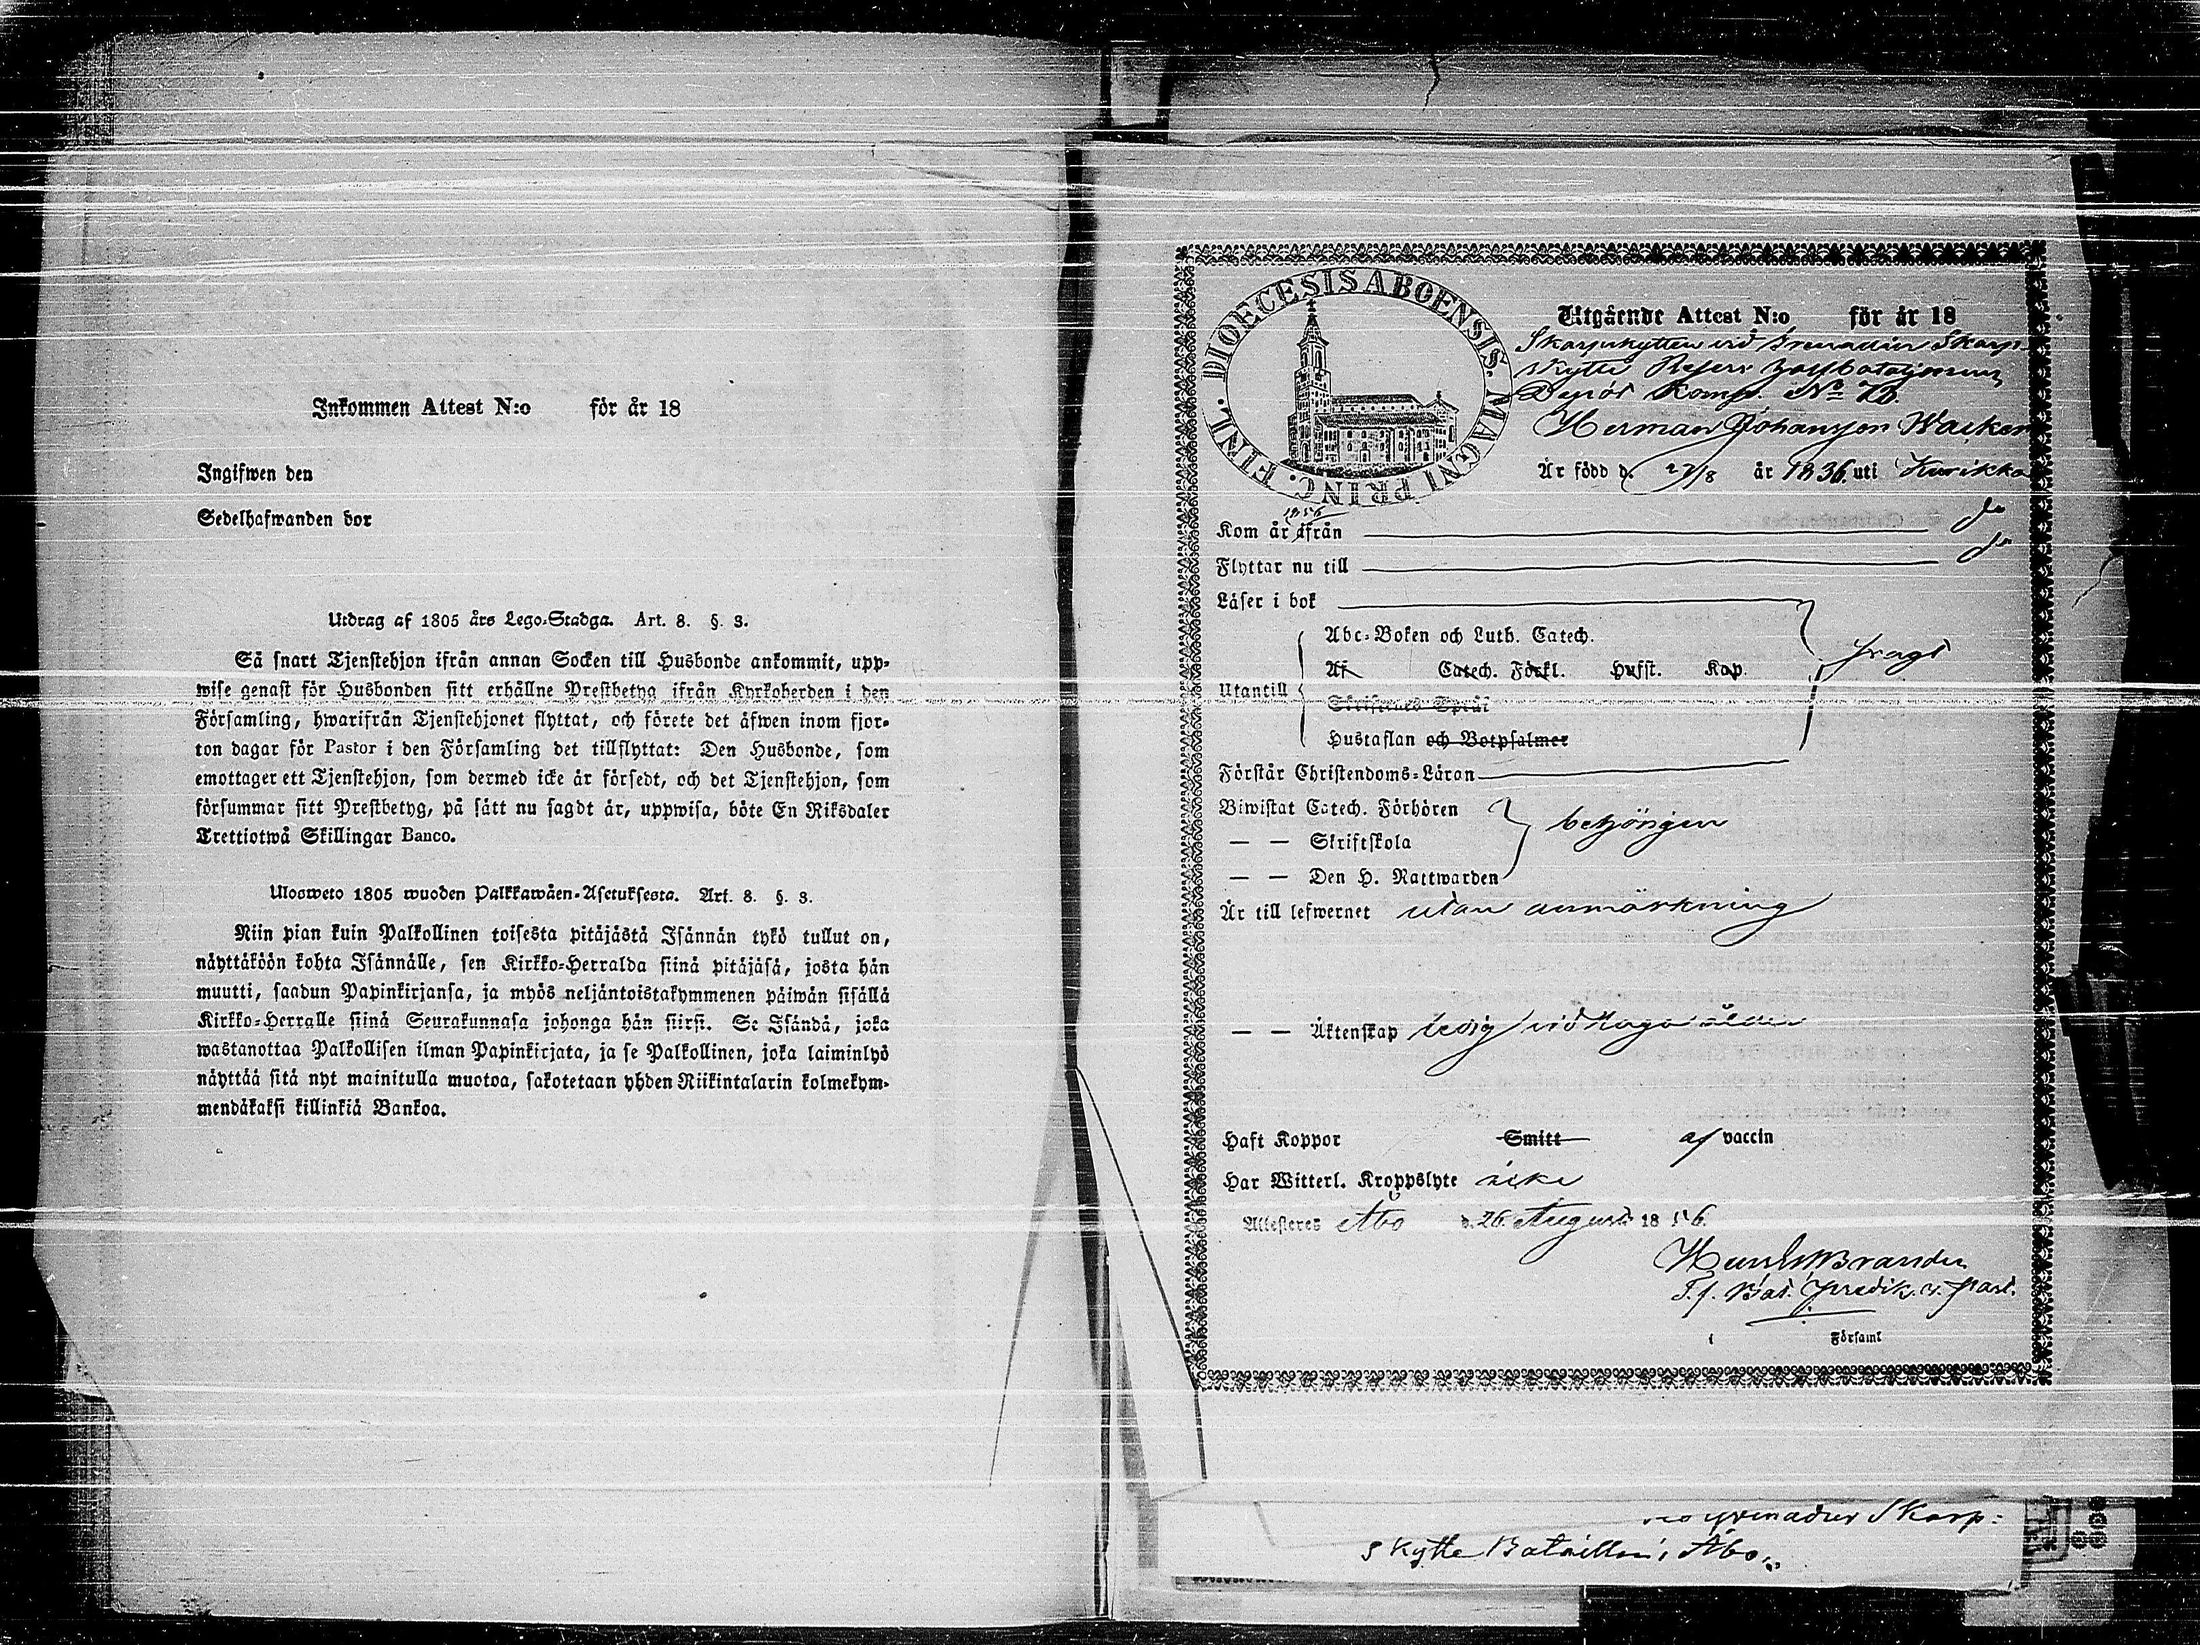 Inkommen Attest N:o för år 18
Ingifwen den
Sedelhafwanden bor
Utdrag af 1805 års Lego-Stadga. Art. 8. §. 3.
Så snart Tjenstehjon ifrån annan Socken till Husbonde ankommit, upp-
wise genast för Husbonden sitt erhållne Prestbetyg ifrån Kyrkoherden i den
Församling, hwarifrån Tjenstehjonet flyttat, och förete det äfwen inom fjor-
ton dagar för Pastor i den Församling det tillflyttat: Den Husbonde, som
emottager ett Tjenstehjon, som dermed icke är försedt, och det Tjenstehjon, som
försummar sitt Prestbetyg, på sätt nu sagdt är, uppwisa, böte En Riksdaler
Trettiotwå Skillingar Banco.
Ulosweto 1805 wuoden Palkkawäen-Asetuksesta. Art. 8. §. 3.
Niin pian kuin Palkollinen toisesta pitäjästä Isännän tykö tullut on,
näyttäköön kohta Isännälle, sen Kirkko-Herralda siinä pitäjäsä, josta hän
muutti, saadun Papinkirjansa, ja myös neljäntoistakymmenen päiwän sisällä
Kirkko-Herralle siinä Seurakunnasa johonga hän siirsi. Se Isändä, joka
wastanottaa Palkollisen ilman Papinkirjata, ja se Palkollinen, joka laiminlyö
näyttää sitä nyt mainitulla muotoa, sakotetaan yhden Riikintalarin kolmekym-
mendäkaksi killinkiä Bankoa.
DIOECESIS ABOENSIS. MAGNI PRINC. FINL.
Utgående Attest N:o för år 18
Skarpskytten vid Grenadier Skarp
skytte Reserv
Depôt Komp. No
Herman Johansson
Är född d. 27/8 år 1836 uti Kurikka
1856
Kom år ifrån do
Flyttar nu till do
Läser i bok
Abc-Boken och Luth. Catech.
Af Catech. Förkl. Husst. Kap.
Utantill
Skriftenes Språk
Hustaflan och Botpsalmer
Förstår Christendoms-Läran
Biwistat Catech. Förhören behörigen
— — Skriftskola
— — Den H. Nattwarden
Är till lefwernet utan anmärkning
— — Äktenskap ledig vid
Haft Koppor Smitt af vaccin
Har Witterl. Kroppslyte icke
Attesteras Åbo d. 26 Augusti 1856
Brander
T. f. Bat. Predik. o. Past.
i Församl
Grenadier Skarp:
skytte Bataillon i Åbo.